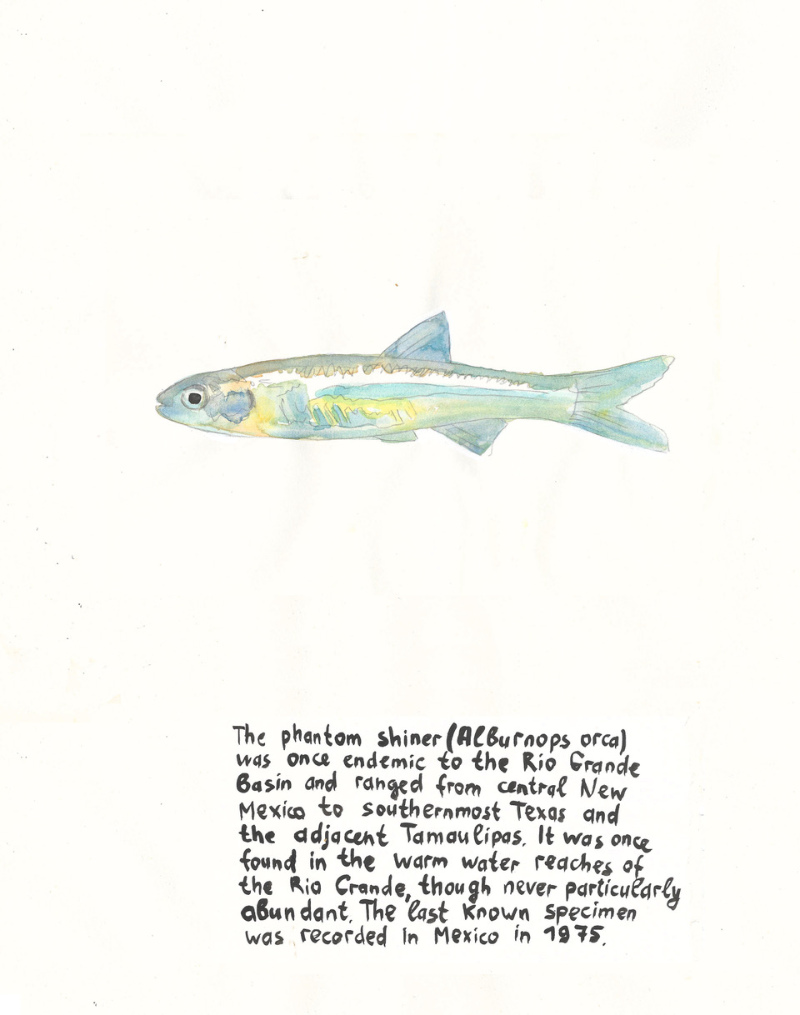 The phantom shiner (Alburnops orca)
was once endemic to the Rio Grande
Basin and ranged from central New
Mexico to southernmost Texas and
the adjacent Tamaulipas. It was once
found in the warm water reaches of
the Rio Grande, though never particularly
abundant. The last known specimen
was recorded in Mexico in 1975.